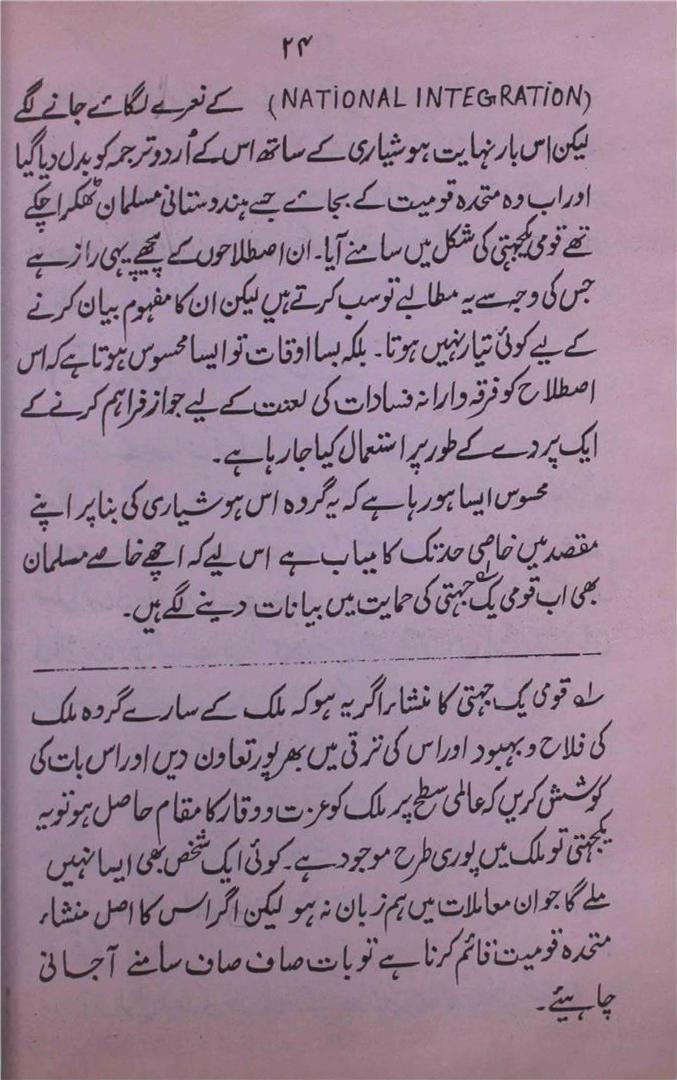 ۲۴
(NATIONAL INTEGRATION) کے نعرے لگائے جانے لگے
لیکن اس بار نہایت ہوشیاری کے ساتھ اس کے اُردو ترجمہ کو بدل دیا گیا
اور اب وہ متحدہ قومیت کے بجائے جسے ہندوستانی مسلمان ٹھکرا چکے
تھے قومی یکجہتی کی شکل میں سامنے آیا۔ ان اصطلاحوں کے پیچھے یہی راز ہے
جس کی وجہ سے یہ مطالبے تو سب کرتے ہیں لیکن ان کا مفہوم بیان کرنے
کے لیے کوئی تیار نہیں ہوتا۔ بلکہ بسا اوقات تو ایسا محسوس ہوتا ہے کہ اس
اصطلاح کو فرقہ وارانہ فسادات کی لعنت کے لیے جواز فراہم کرنے کے
ایک پردے کے طور پر استعمال کیا جا رہا ہے۔
محسوس ایسا ہو رہا ہے کہ یہ گروہ اس ہوشیاری کی بنا پر اپنے
مقصد میں خاصی حد تک کامیاب ہے اس لیے کہ اچھے خاصے مسلمان
بھی اب قومی یک جہتی؂۱ کی حمایت میں بیانات دینے لگے ہیں۔
؂۱ قومی یک جہتی کا منشاء اگر یہ ہو کہ ملک کے سارے گروہ ملک
کی فلاح و بہبود اور اس کی ترقی میں بھرپور تعاون دیں اور اس بات کی
کوشش کریں کہ عالمی سطح پر ملک کو عزت و وقار کا مقام حاصل ہو تو یہ
یکجہتی تو ملک میں پوری طرح موجود ہے۔ کوئی ایک شخص بھی ایسا نہیں
ملے گا جو ان معاملات میں ہم زبان نہ ہو لیکن اگر اس کا اصل منشاء
متحدہ قومیت قائم کرنا ہے تو بات صاف صاف سامنے آجانی
چاہیئے۔